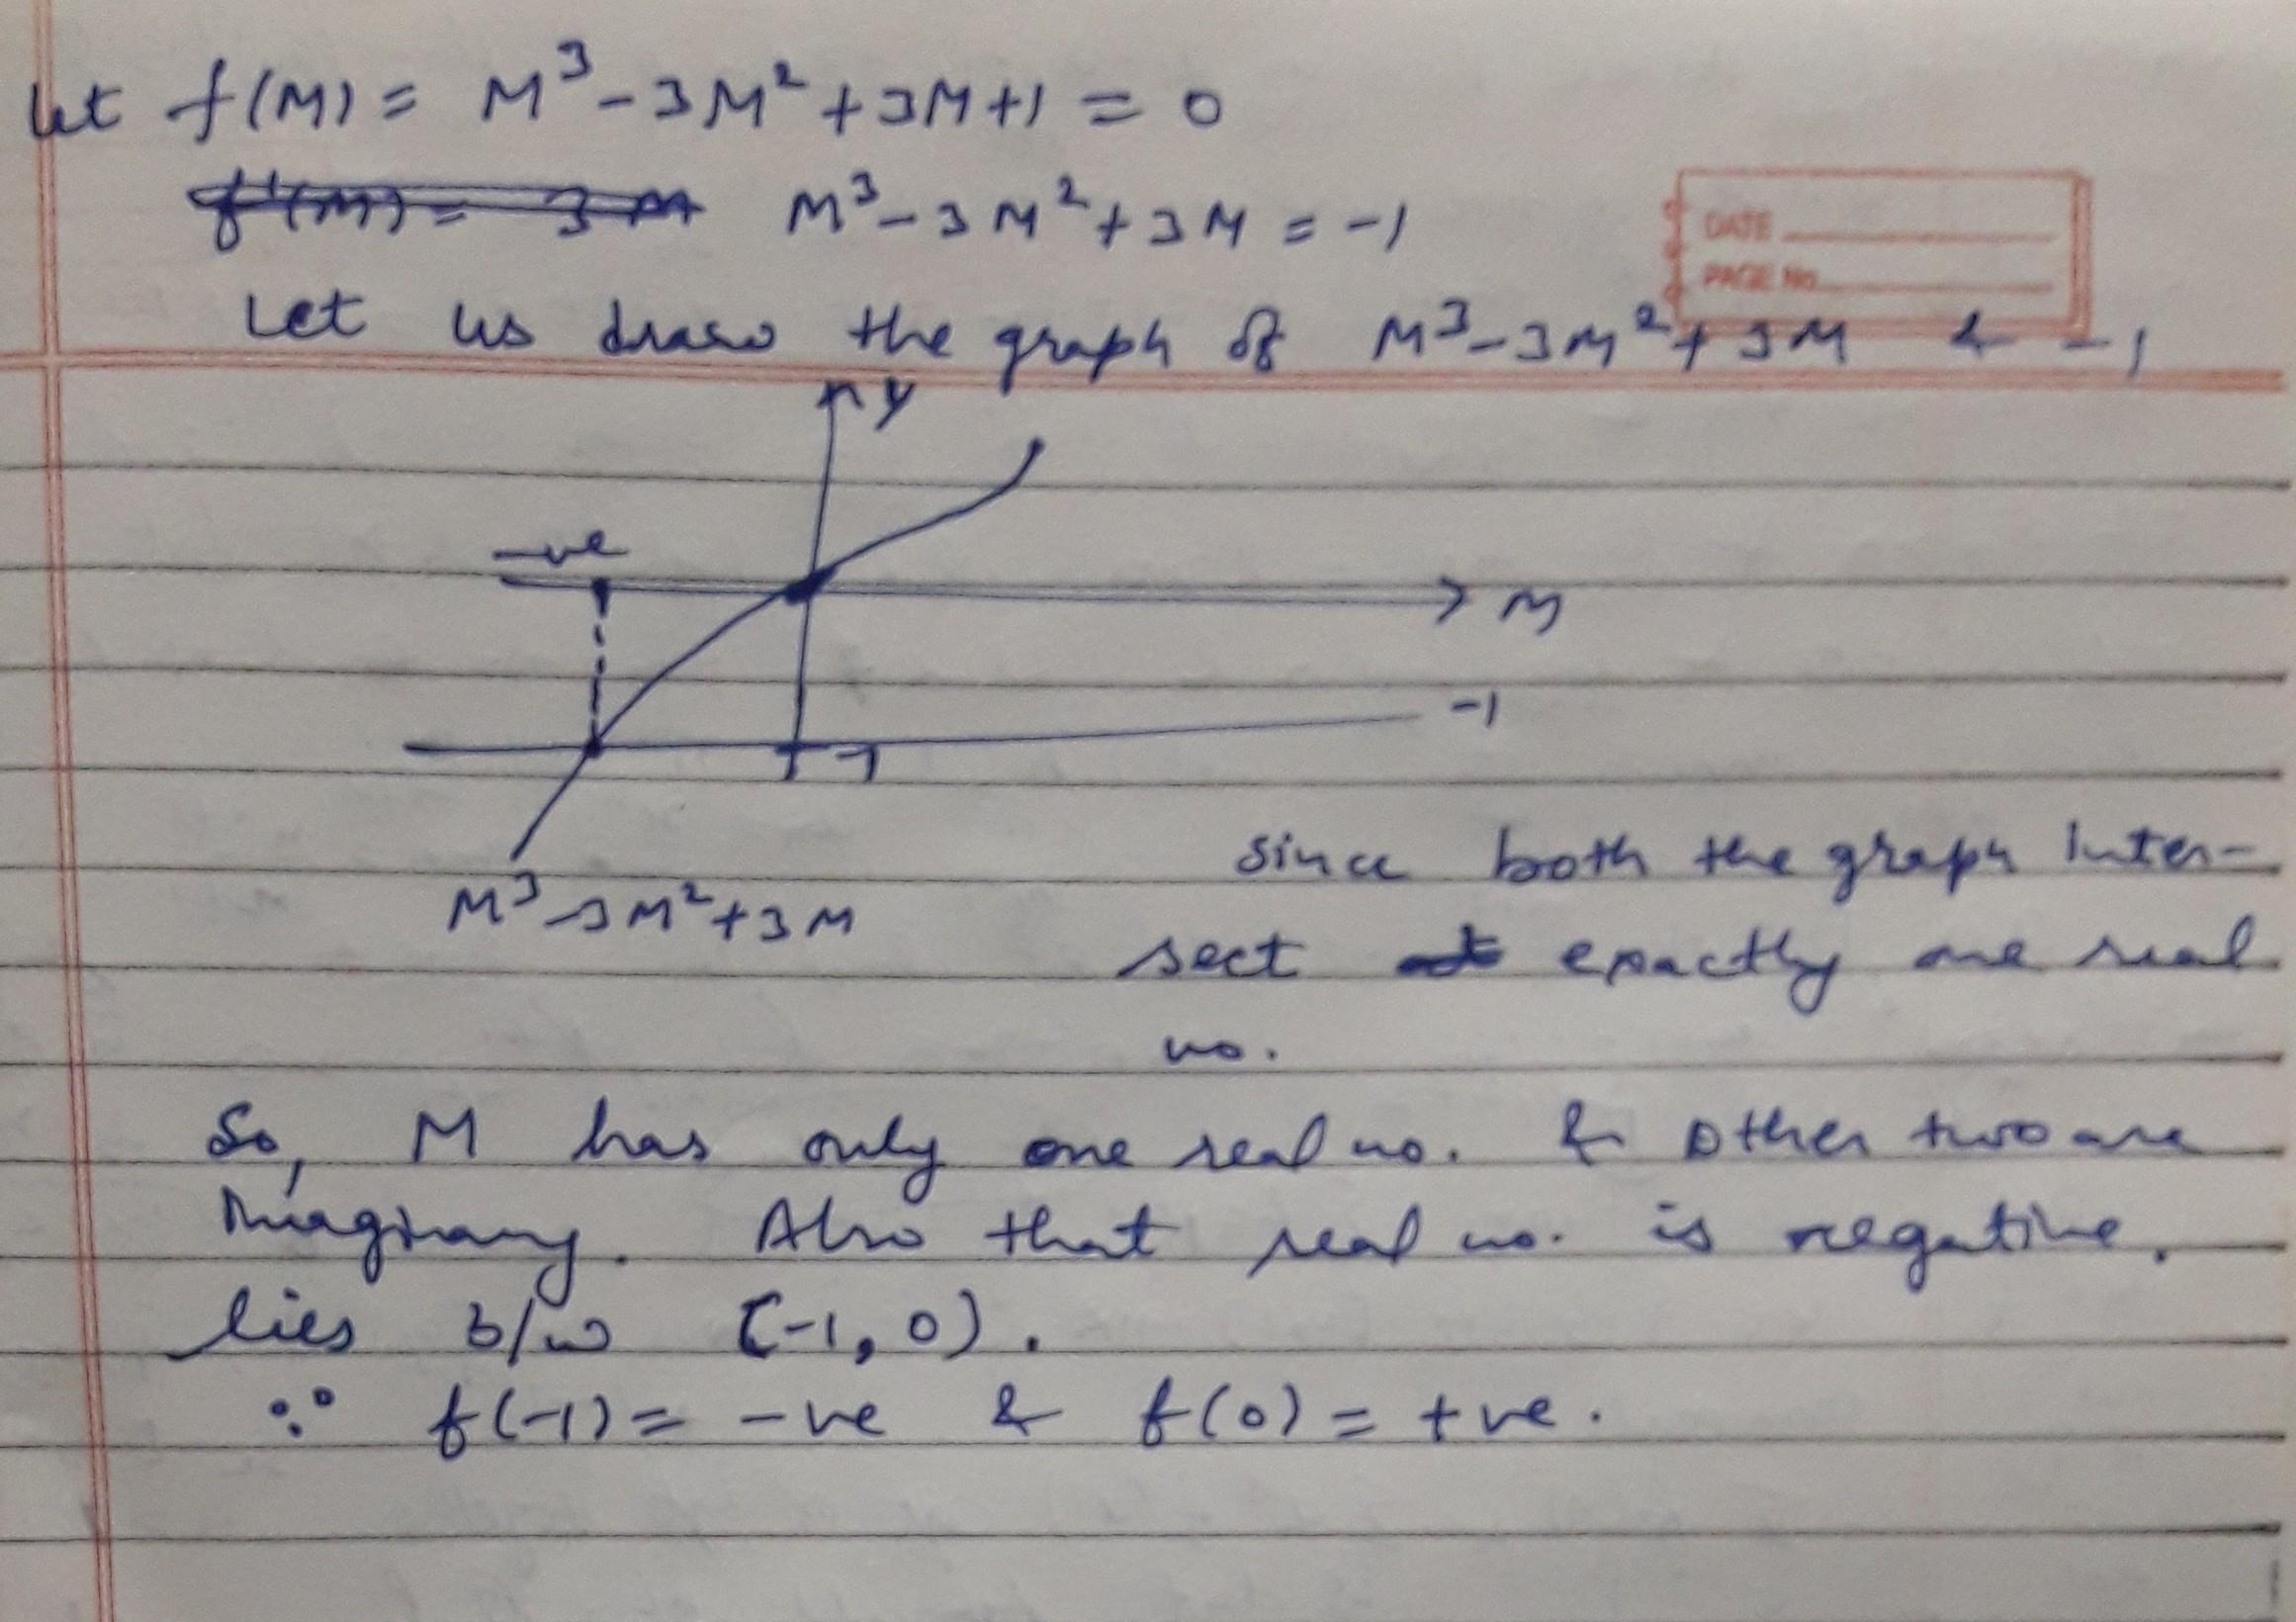 let f(M) = M³ - 3M² + 3M + 1 = 0
f'(M) = 3M M³ - 3M² + 3M = -1
DATE
PAGE No.
Let us draw the graph of M³ - 3M² + 3M & -1
y
-ve
M
-1
-1
M³ - 3M² + 3M
since both the graph inter-
sect at exactly one real
no.
So, M has only one real no. & other two are
Imaginary. Also that real no. is negative.
lies b/w (-1, 0).
∵ f(-1) = -ve & f(0) = +ve.